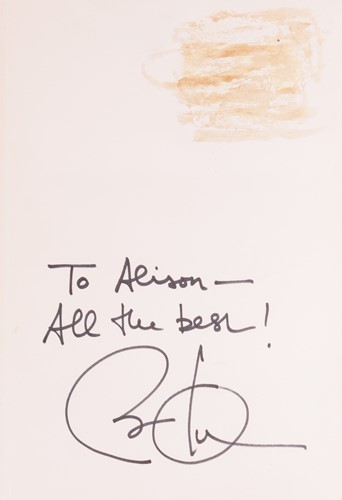 To Alison—
All the best!